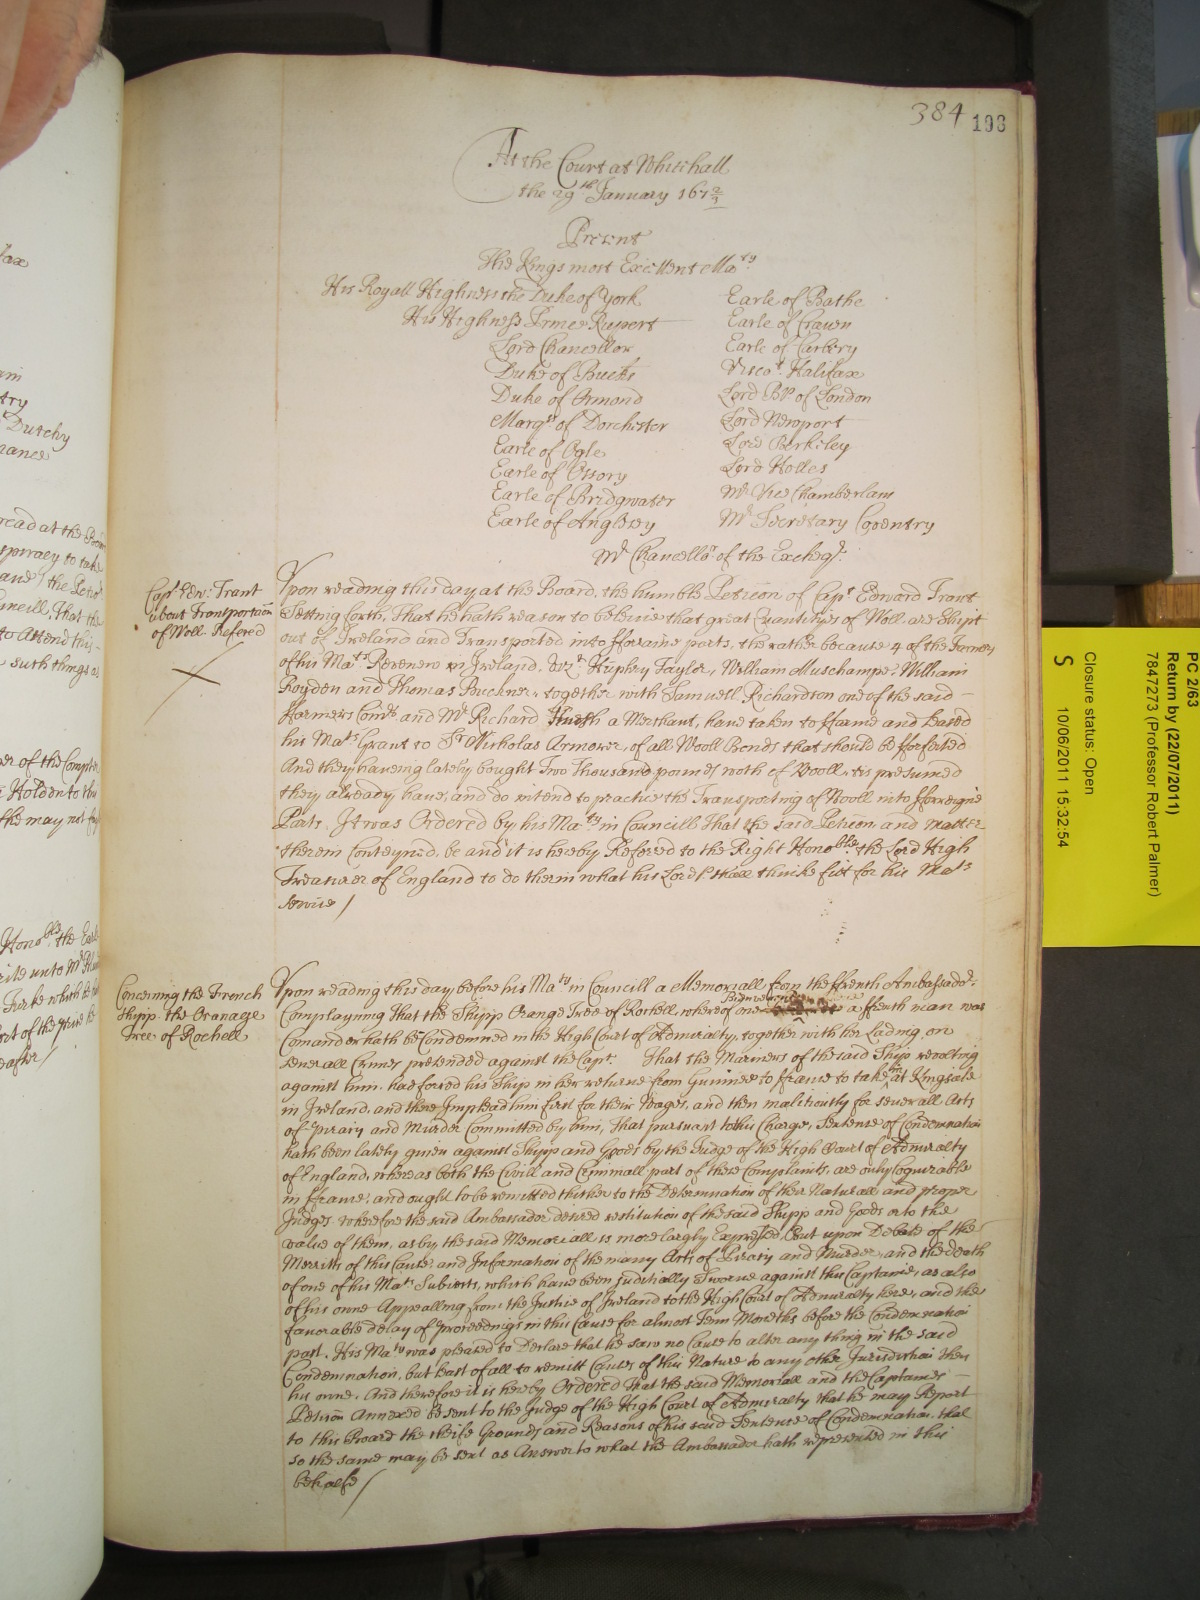 384 193
At the Court at Whitehall
the 29th January 167 2/3
Present
The Kings most Excellent Maty
His Royall Highness the Duke of York
His Highness Prince Rupert
Lord Chancellor
Duke of Bucks
Duke of Ormond
Marqs of Dorchester
Earle of Ogle
Earle of Ossory
Earle of Bridgwater
Earle of Anglesey
Earle of Bathe
Earle of Craven
Earle of Carbery
Viscot Halifax
Lord Bp of London
Lord Newport
Lord Berkeley
Lord Holles
Mr Vice Chamberlain
Mr Secretary Coventry
Mr Chancellor of the Excheqr
Capt Edw: Trant
about Transportacon
of Woll. Referd
Upon reading this day at the Board, the humble Peticon of Capt Edward Trant
Setting forth, That he hath reason to beleive that great Quantityes of Woll are Shipt
out of Ireland and Transported into fforraine parts, the rather because 4 of the Farmers
of his Mats Revenew in Ireland, Vizt Huphry Taylor, William Muschampe, William
Royden and Thomas Buckner, together with Samuell Richardson one of the said
ffarmers Comrs and Mr Richard a Merchant, have taken to ffarme and Leased
his Mats Grant to Sr Nicholas Armorer, of all Wooll Bonds that should be fforfeited
And they haveing lately bought Two Thousand pounds woth of Wooll, tis presumed
they already have, and do intend to practice the Transporting of Wooll into fforreigne
Parts. It was Ordered by his Maty in Councill That the said Peticon, and matter
therein Conteyned, be and it is hereby Refered to the Right Honoble the Lord High
Treasurer of England to do therin what his Lordp shall thinke fitt for his Mats
service /
Concerning the French
Shipp the Oranage
Tree of Rochell
Upon reading this day before his Maty in Councill a Memoriall from the ffrench Ambassador,
Complayning That the Shipp Orange Tree of Rochell, whereof one a ffrench man was
Comander hath be Condemned in the High Court of Admiralty, together with her Lading, on
severall Crimes pretended against the Capt. That the Mariners of the said Ship revolting
against him, had forced his Ship in her returne from Guinnee to ffrance to take in at Kingsale
in Ireland, and there Implead him first for their Wages, and then malitiously for severall Acts
of Piracy and Murder Committed by him, That pursuant to this Charge, Sentence of Condemnation
hath been lately given against Shipp and Goods by the Judge of the High Court of Admiralty
of England, whereas both the Civill and Criminall part of these Complaints, are only Cognizable
in ffrance, and ought to be remitted thither to the Determination of their Naturall and proper
Judges wherefore the said Ambassador desired restitution of the said Shipp and Goods or to the
value of them, as by the said Memoriall is more largly Expressed, But upon Debate of the
Merritts of this Cause, and Information of the many Acts of Piracy and Murder, and the death
of one of his Mats Subiects, which have been Juditially Sworne against this Captaine, as also
of his owne Appealling from the Justice of Ireland to the High Court of Admiralty here, and the
favorable delay of proceedings in this Cause for almost Tenn Moneths before the Condemnation
past. His Maty was pleased to Declare that he saw no Cause to alter any thing in the said
Condemnation, but least of all to remitt Causes of this Nature to any other Jurisdiction then
his owne. And therefore it is hereby Ordered That the said Memoriall and the Captaines
Peticon Annexed be sent to the Judge of the High Court of Admiralty that he may Report
to this Board the Grounds and Reasons of his said Sentence of Condemnation, that
so the same may be sent as Answer to what the Ambassador hath represented in this
behalfe /
PC 2/63
Return by (22/07/2011)
7847273 (Professor Robert Palmer)
Closure status: Open
S 10/06/2011 15:32:54